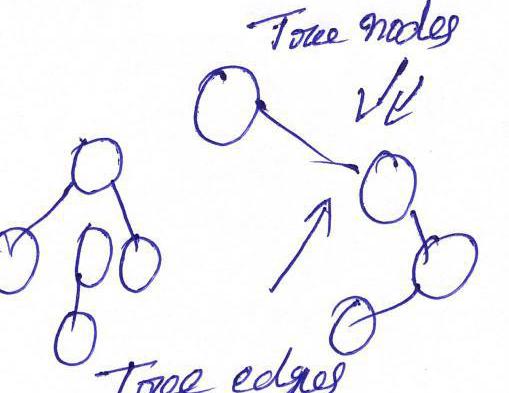 Tree nodes
Tree edges